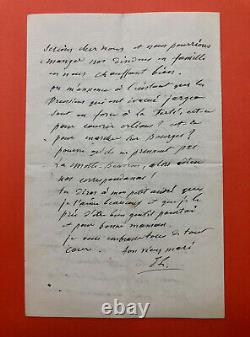 serions chez nous et nous pourrions
manger nos dindons en famille
en nous chauffant bien.
on m'annonce à l'instant que les
Prussiens qui ont évacué Jargeau
sont en force à la Ferté, est-ce
pour couvrir orléans ? est-ce
pour marcher sur Bourges ?
pourvu qu'ils ne prennent pas
La Motte-Beuvron, alors adieu
nos correspondances !
tu diras à mon petit andré que
je l'aime beaucoup et que je le
prie d'être bien gentil pour toi
et pour bonne maman.
je vous embrasse toutes de tout
cœur. ton vieux mari